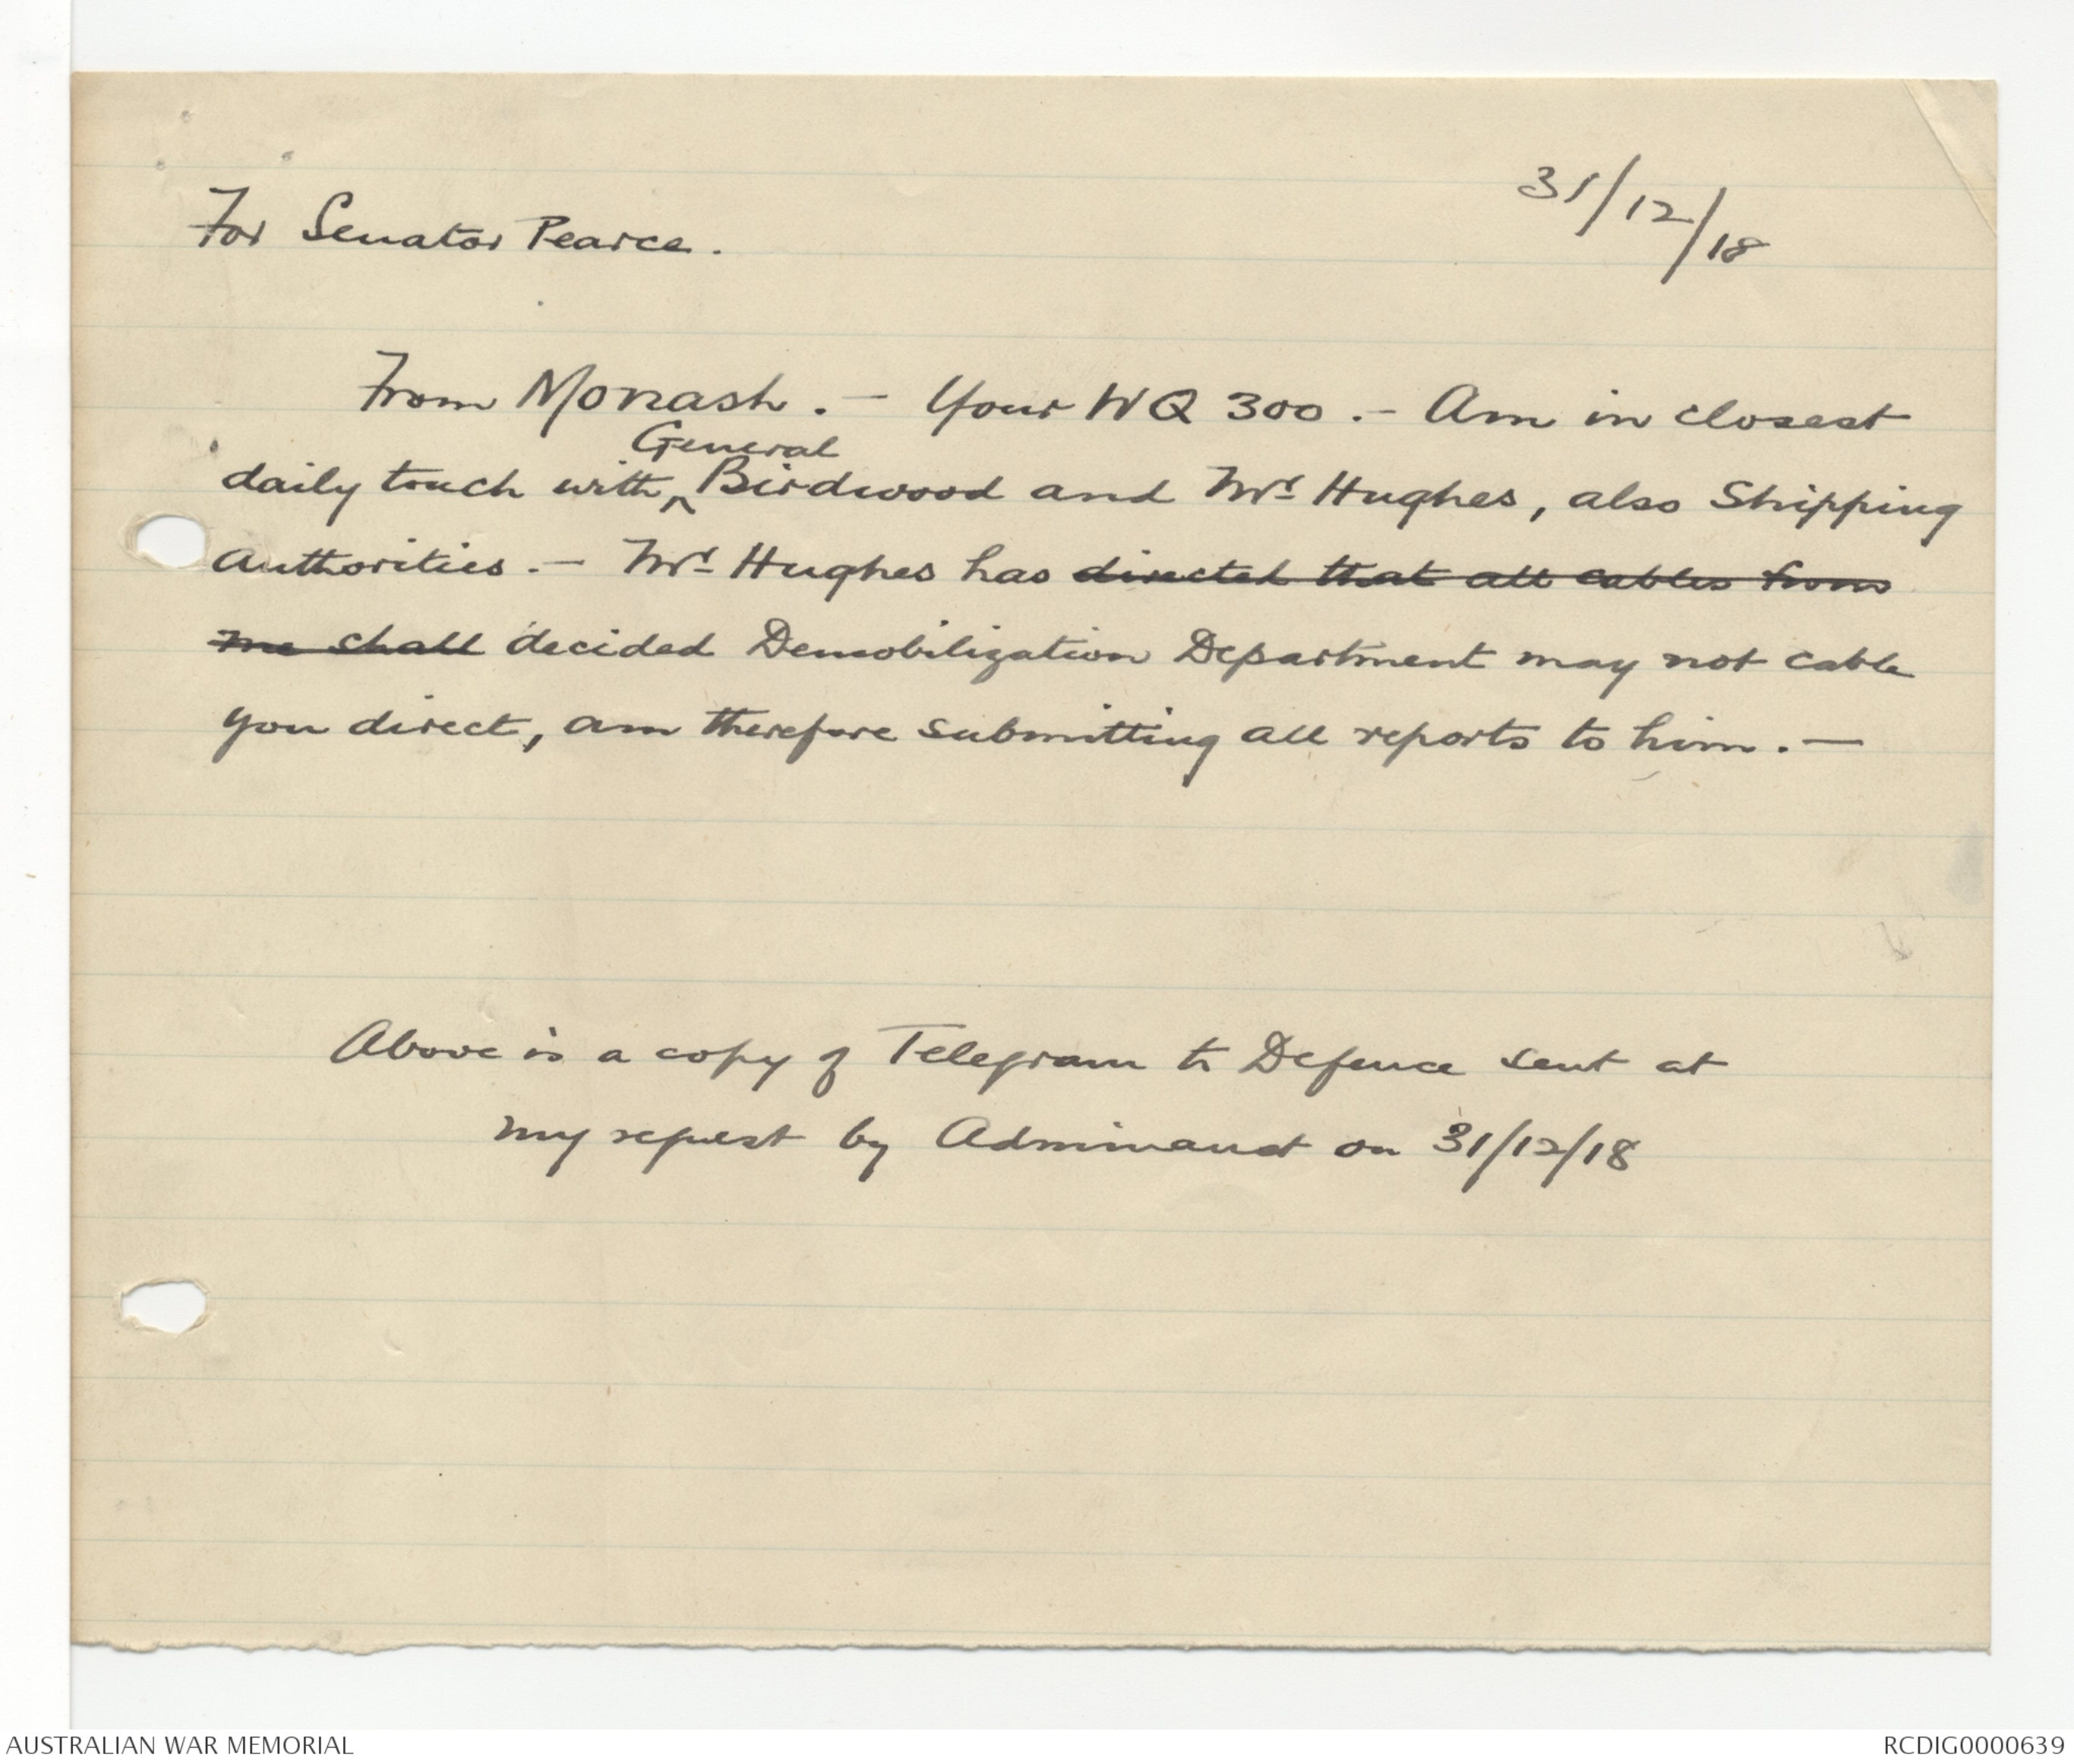 31/12/18
For Senator Pearce.
From Monash. - Your WQ 300. - Am in closest
General
daily touch with ^ Birdwood and Mr Hughes, also Shipping
authorities. - Mr Hughes has directed that all cables from
me shall decided Demobilization Department may not cable
you direct, am therefore submitting all reports to him. -
Above is a copy of Telegram to Defence sent at
my request by Adminaust on 31/12/18
AUSTRALIAN WAR MEMORIAL
RCDIG0000639